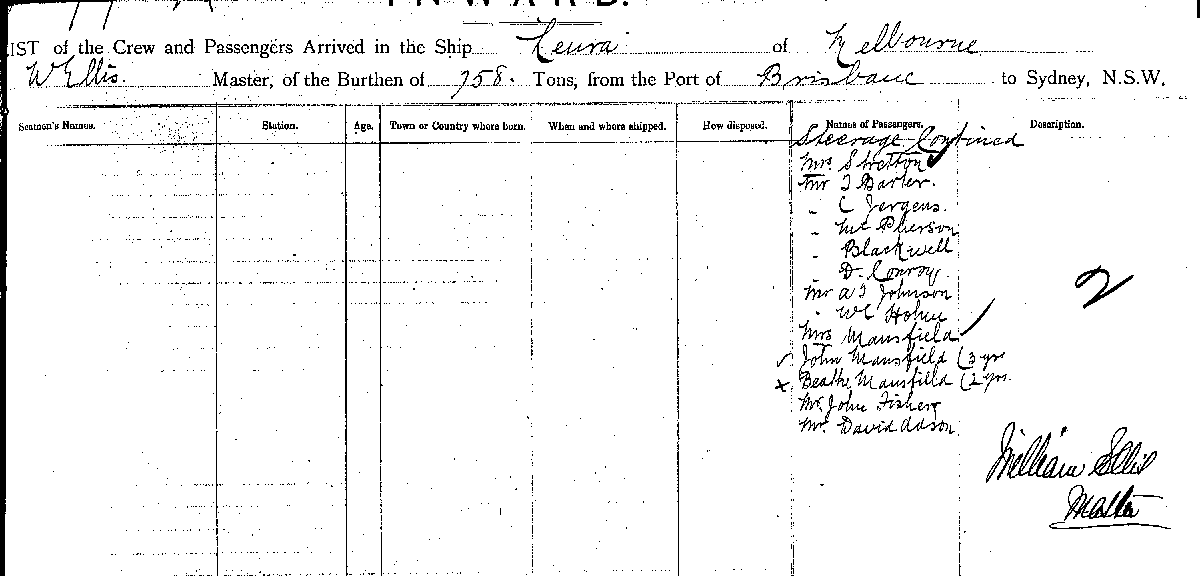 INWARD.
LIST of the Crew and Passengers Arrived in the Ship Leura of Melbourne
W Ellis. Master, of the Burthen of 758. Tons, from the Port of Brisbane to Sydney, N.S.W.
Seamen's Names. Station. Age. Town or Country where born. When and where shipped. How disposed. Names of Passengers. Description.
Steerage Continued
Mrs Stretton
Mr J Barter.
" C Jergens.
" McPherson
" Blackwell
D. Conroy
Mr A J Johnson
" WC
Mrs Mansfield
✓ John Mansfield (3 yrs
x Mansfield (2 yrs.
Mr. John Fisher
Mr. David
2
William Ellis
Master